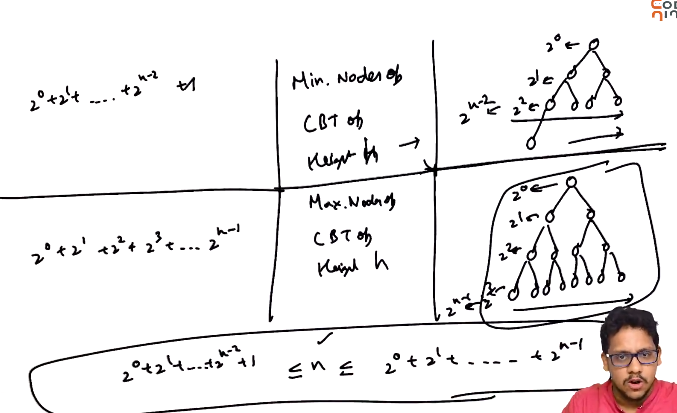 2⁰+2¹+ .... +2ʰ⁻² +1
Min. Nodes of
CBT of
Height h
2⁰
2¹
2ʰ⁻² 2²
2⁰ + 2¹ + 2² + 2³ + ... 2ʰ⁻¹
Max. Nodes of
CBT of
Height h
2⁰
2¹
2²
2ʰ⁻¹ 2³
2⁰+2¹+...+2ʰ⁻²+1 ≤ n ≤ 2⁰ + 2¹ + ..... + 2ʰ⁻¹